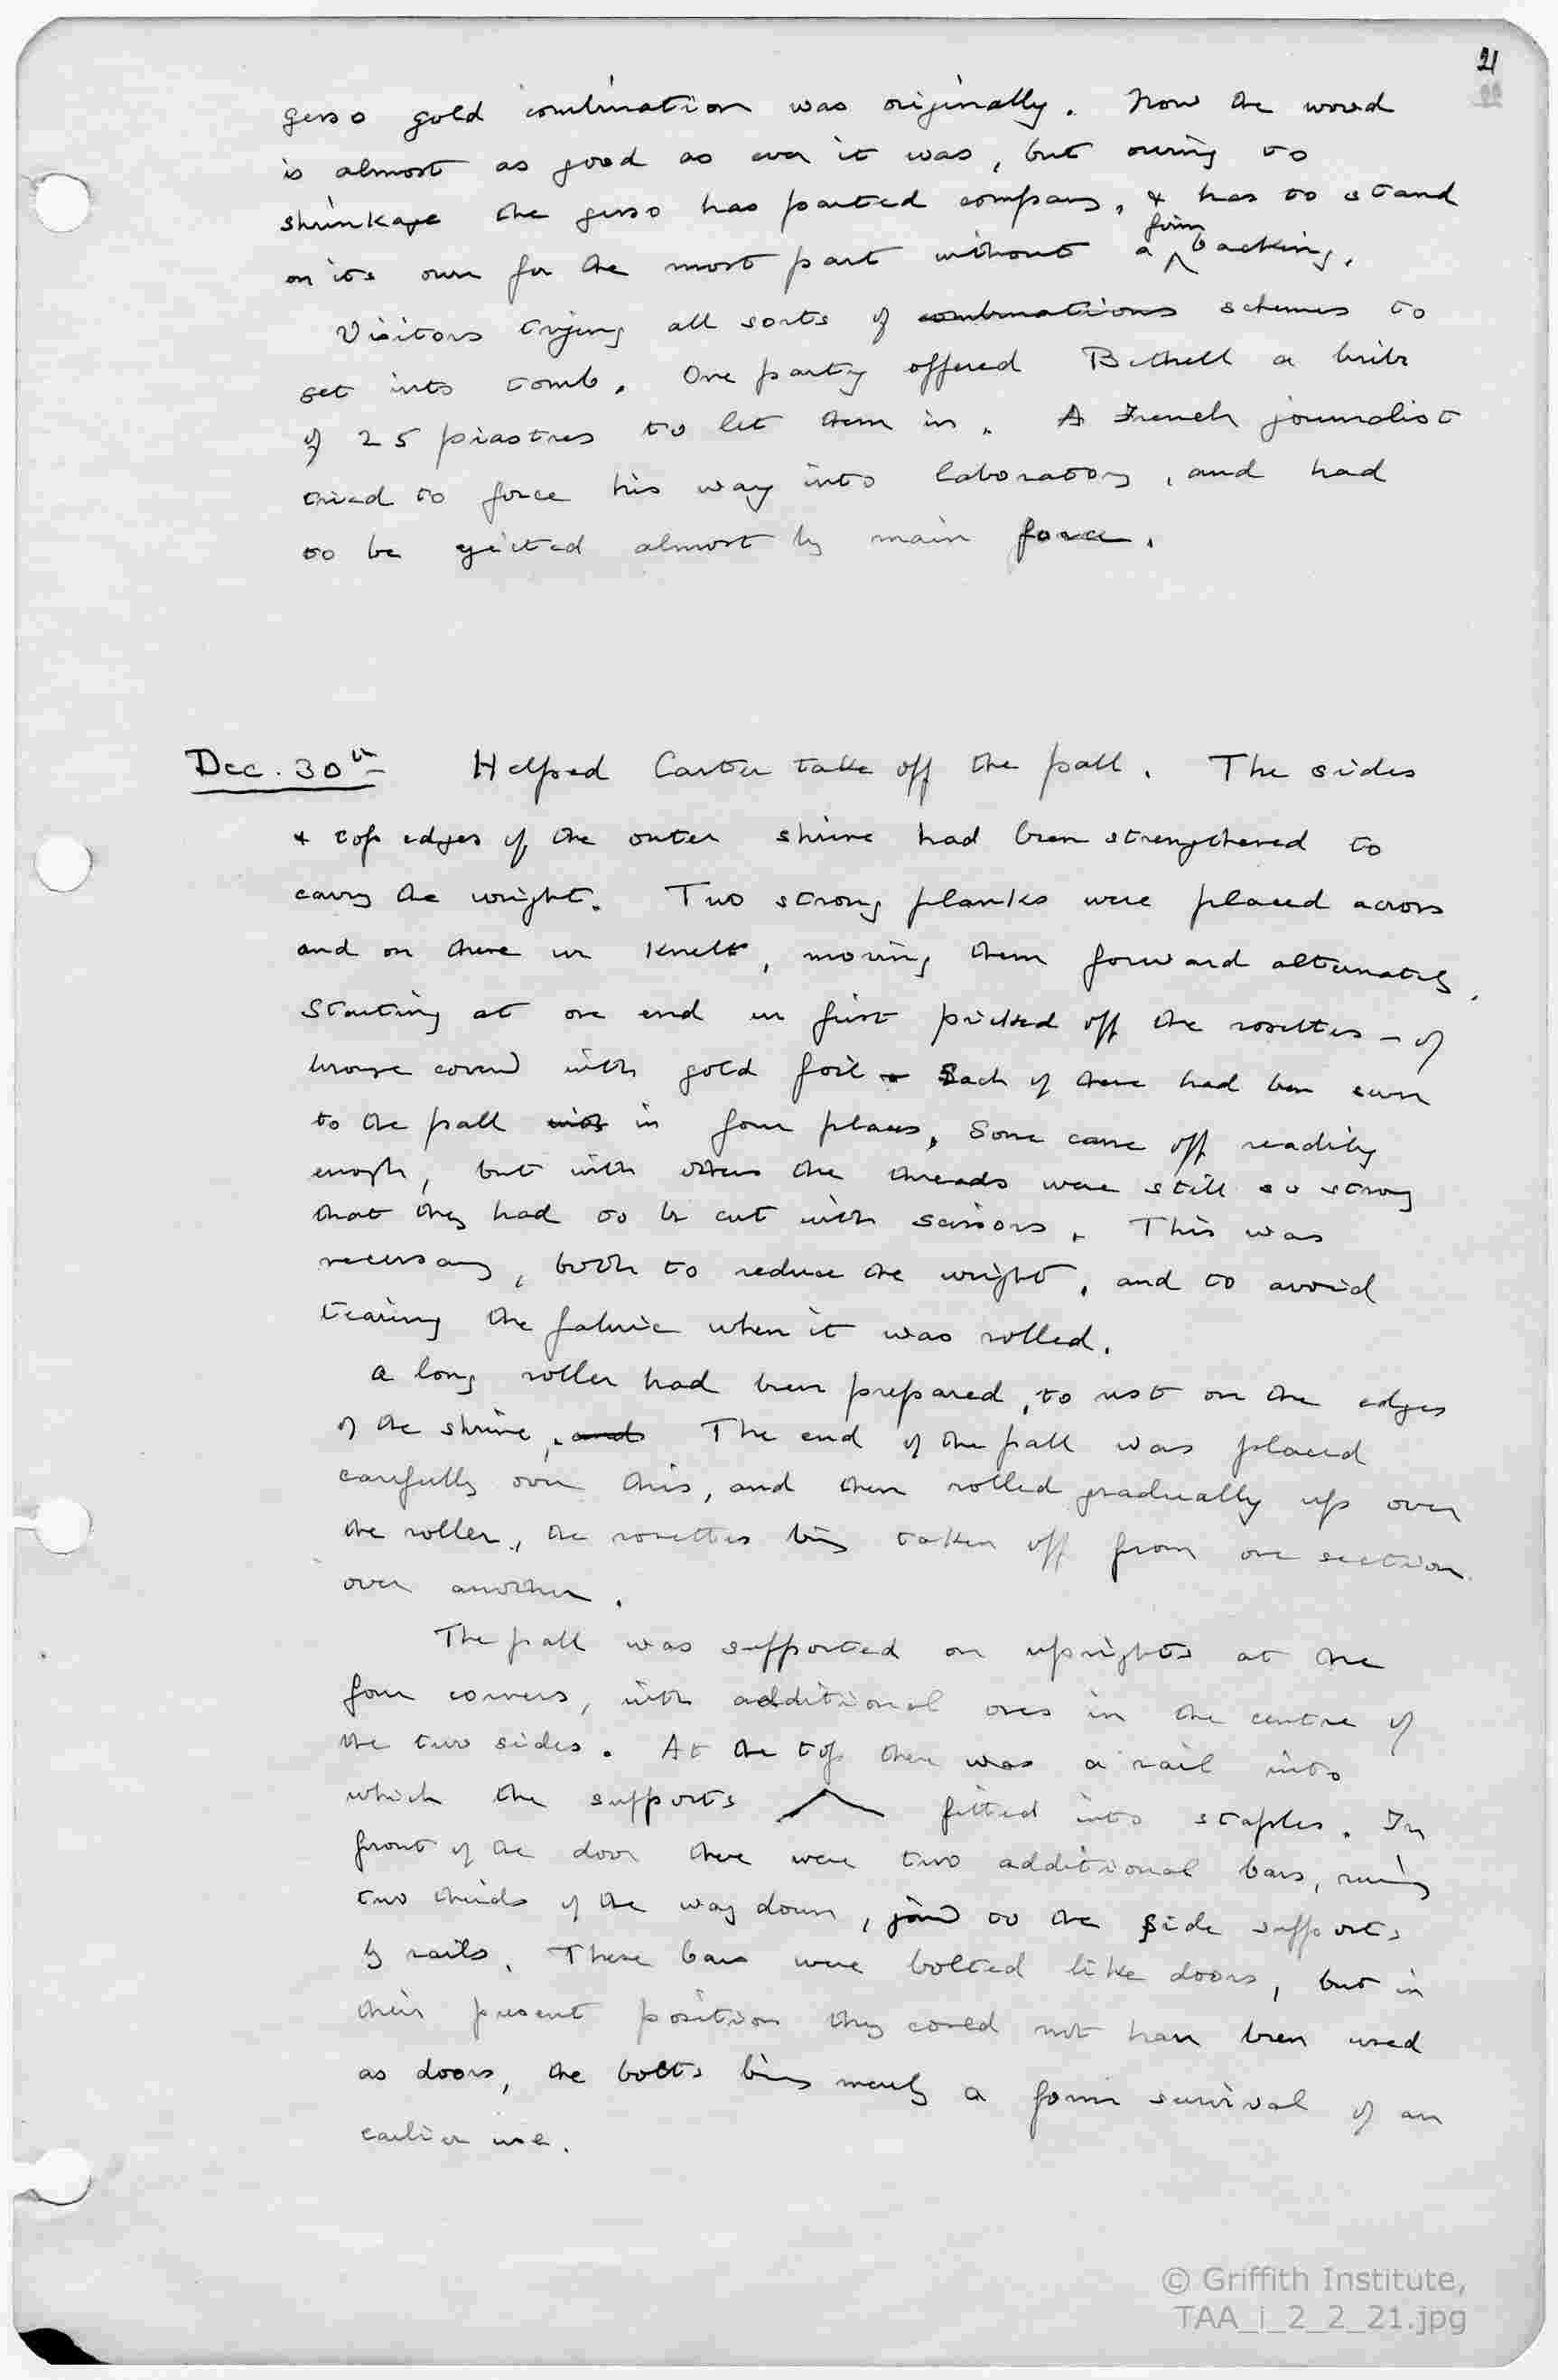 21
gesso gold combination was originally. Now the wood
is almost as good as ever it was, but owing to
shrinkage the gesso has parted company, & has to stand
on its own for the most part without a firm backing.
Visitors trying all sorts of combinations schemes to
get into tomb. One party offered Bethell a bribe
of 25 piastres to let them in. A French journalist
tried to force his way into laboratory, and had
to be ejected almost by main force.
Dec. 30th Helped Carter take off the pall. The sides
& top edges of the outer shrine had been strengthened to
carry the weight. Two strong planks were placed across
and on these we knelt, moving them forward alternately.
Starting at one end we first picked off the rosettes - of
bronze covered with gold foil - Each of these had been sewn
to the pall with in four places. Some came off readily
enough, but with others the threads were still so strong
that they had to be cut with scissors. This was
necessary, both to reduce the weight, and to avoid
tearing the fabric when it was rolled.
A long roller had been prepared, to rest on the edges
of the shrine. and The end of the pall was placed
carefully over this, and then rolled gradually up over
the roller, the rosettes being taken off from one section
over another.
The pall was supported on uprights at the
four corners, with additional ones in the centre of
the two sides. At the top there was a rail into
which the supports fitted into staples. In
front of the door there were two additional bars, running
two thirds of the way down, joined to the side supports
by rails. These bars were bolted like doors, but in
their present position they could not have been used
as doors, the bolts being merely a form survival of an
earlier use.
© Griffith Institute,
TAA_i_2_2_21.jpg